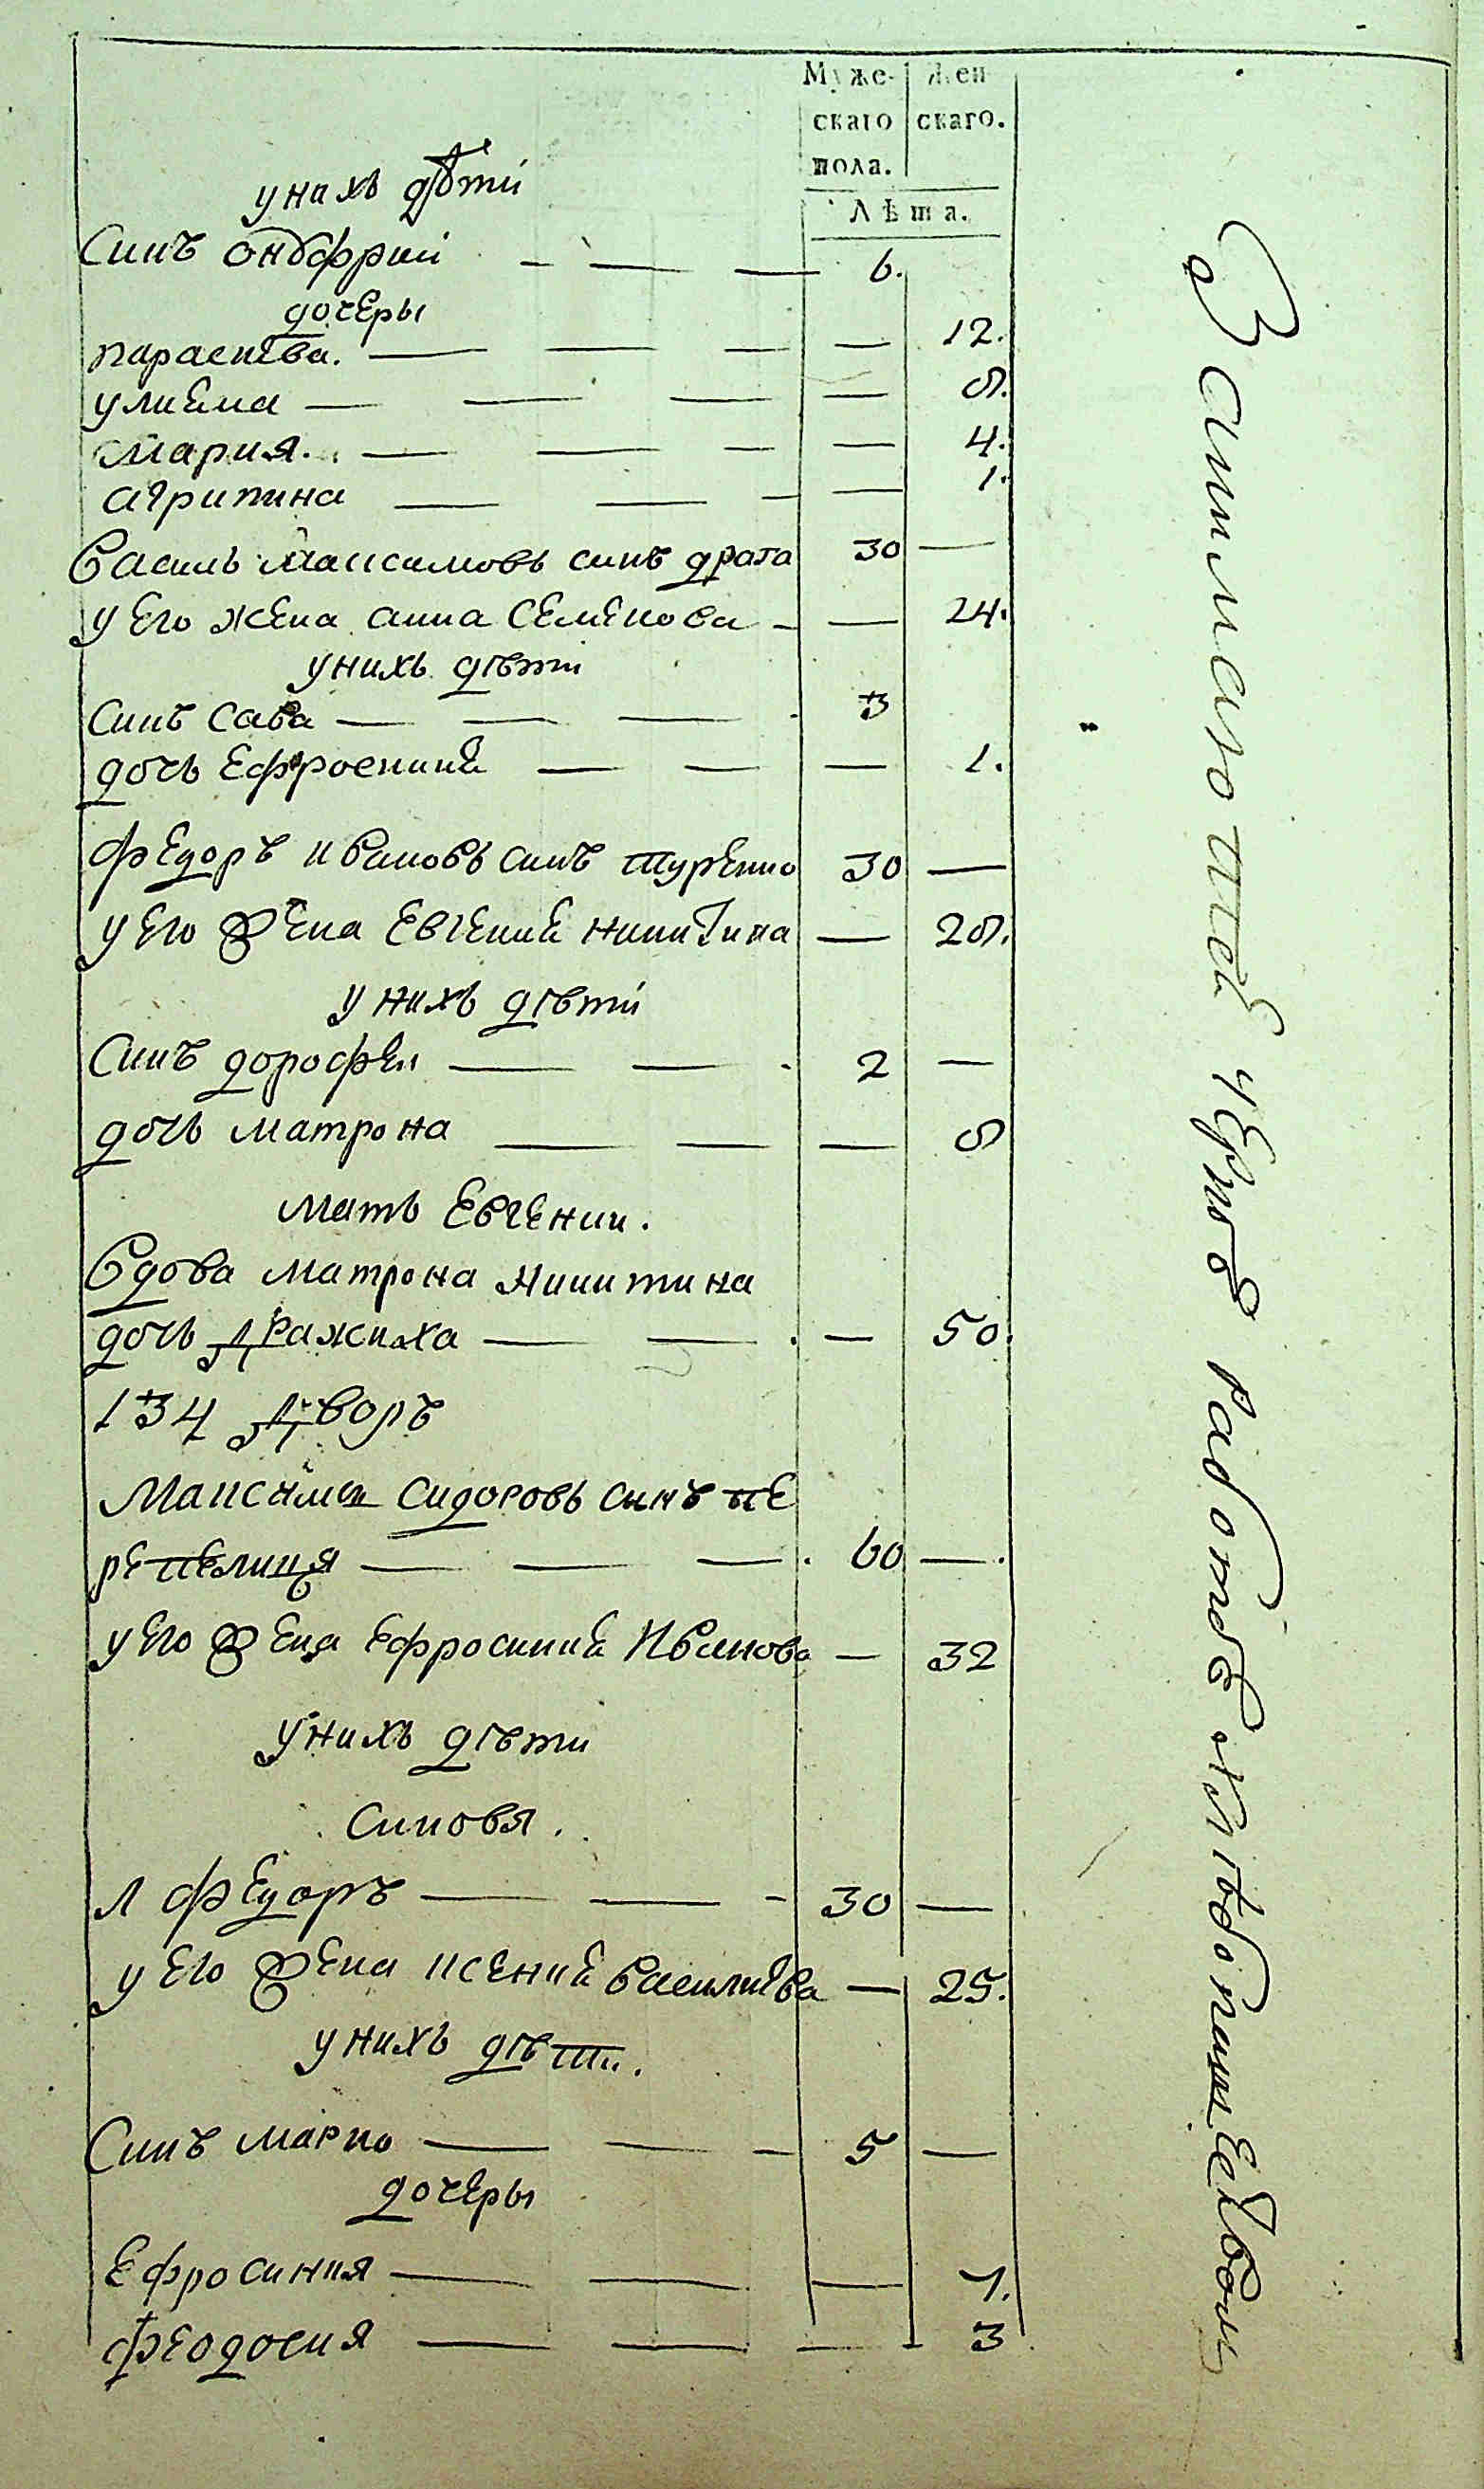 Муже- Жен
скаго скаго.
пола.
Лѣта.
у нихъ дѣти
Синъ онѳфрий 6.
дочеры
параскева. 12.
улияна 8.
мария. 4.
агрипина 1.
Василь максимовъ синъ драга 30
у его жена анна Семенова 24.
у нихъ дѣти
синъ сава 3
дочь Ефросиния 1.
федоръ ивановъ синъ туренко 30
у его жена Евгения никитина 28.
у нихъ дѣти
Синъ дорофеи 2
дочь матрона 8
мать Евгении.
Вдова матрона Никитина
дочь Дражиха 50.
134 Дворъ
Максимъ Сидоровъ синъ пе
репелиця 60
у его жена Ефросиния Иванова 32
у нихъ дѣти
синовя.
1 федоръ 30
у его жена ксения василиева 25.
у нихъ дѣти.
Синъ марко 5
дочеры
Ефросиния 7.
феодосия 3